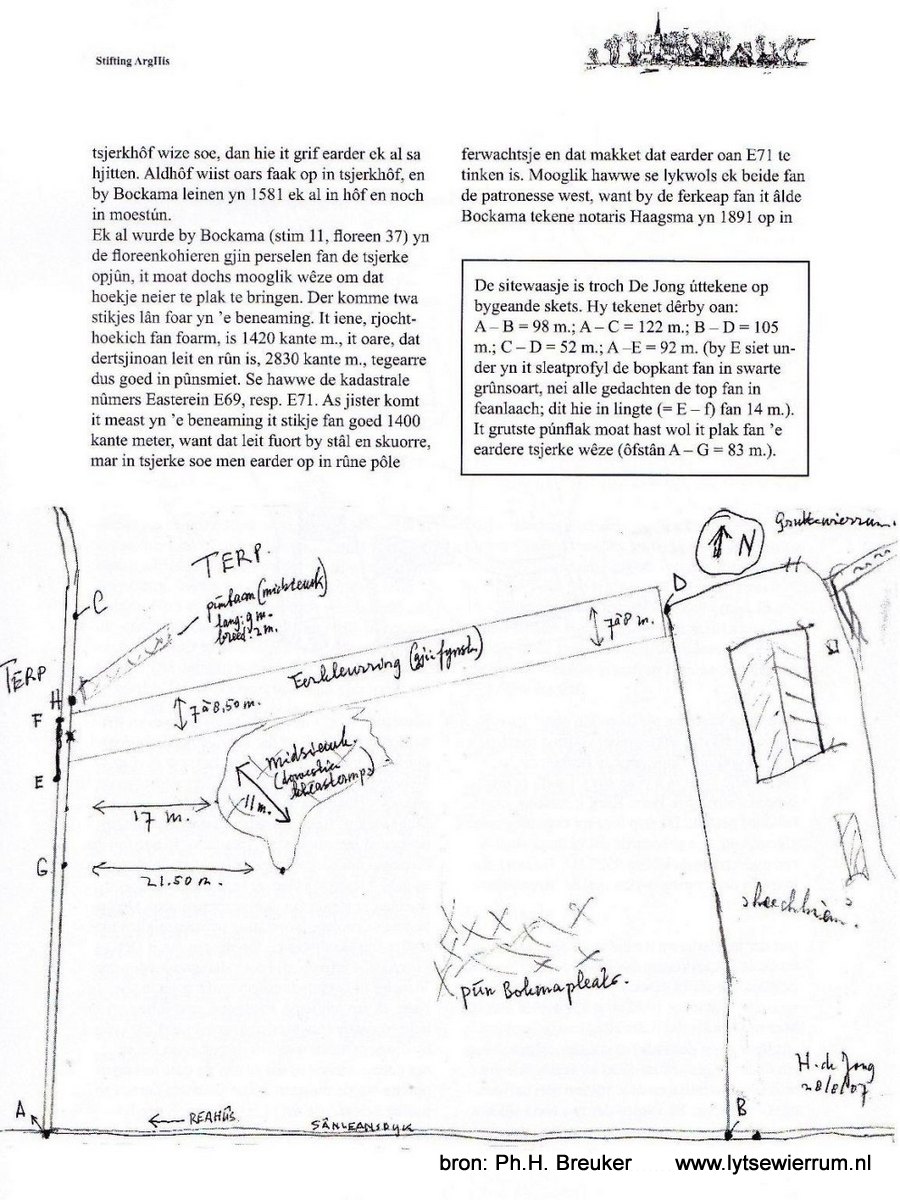 Stifting ArgHis
tsjerkhôf wize soe, dan hie it grif earder ek al sa
hjitten. Aldhôf wiist oars faak op in tsjerkhôf, en
by Bockama leinen yn 1581 ek al in hôf en noch
in moestún.
Ek al wurde by Bockama (stim 11, floreen 37) yn
de floreenkohieren gjin perselen fan de tsjerke
opjûn, it moat dochs mooglik wêze om dat
hoekje neier te plak te bringen. Der komme twa
stikjes lân foar yn 'e beneaming. It iene, rjocht-
hoekich fan foarm, is 1420 kante m., it oare, dat
dertsjinoan leit en rûn is, 2830 kante m., tegearre
dus goed in pûnsmiet. Se hawwe de kadastrale
nûmers Easterein E69, resp. E71. As jister komt
it meast yn 'e beneaming it stikje fan goed 1400
kante meter, want dat leit fuort by stâl en skuorre,
mar in tsjerke soe men earder op in rûne pôle
ferwachtsje en dat makket dat earder oan E71 te
tinken is. Mooglik hawwe se lykwols ek beide fan
de patronesse west, want by de ferkeap fan it âlde
Bockama tekene notaris Haagsma yn 1891 op in
De sitewaasje is troch De Jong úttekene op
bygeande skets. Hy tekenet dêrby oan:
A – B = 98 m.; A – C = 122 m.; B – D = 105
m.; C – D = 52 m.; A –E = 92 m. (by E siet un-
der yn it sleatprofyl de bopkant fan in swarte
grûnsoart, nei alle gedachten de top fan in
feanlaach; dit hie in lingte (= E – f) fan 14 m.).
It grutste púnflak moat hast wol it plak fan 'e
eardere tsjerke wêze (ôfstân A – G = 83 m.).
N
D
C
TERP.
púnbaan
lang: 9 m.
breed: 2 m.
7 à 8 m.
TERP
H
F
E
Ferkleurring
7 à 8,50 m.
midsieuk.
11 m.
17 m.
G
21.50 m.
pún Bokmapleats.
H. de Jong
A
← REAHÚS
SÂNLEANSDYK
B
bron: Ph.H. Breuker www.lytsewierrum.nl